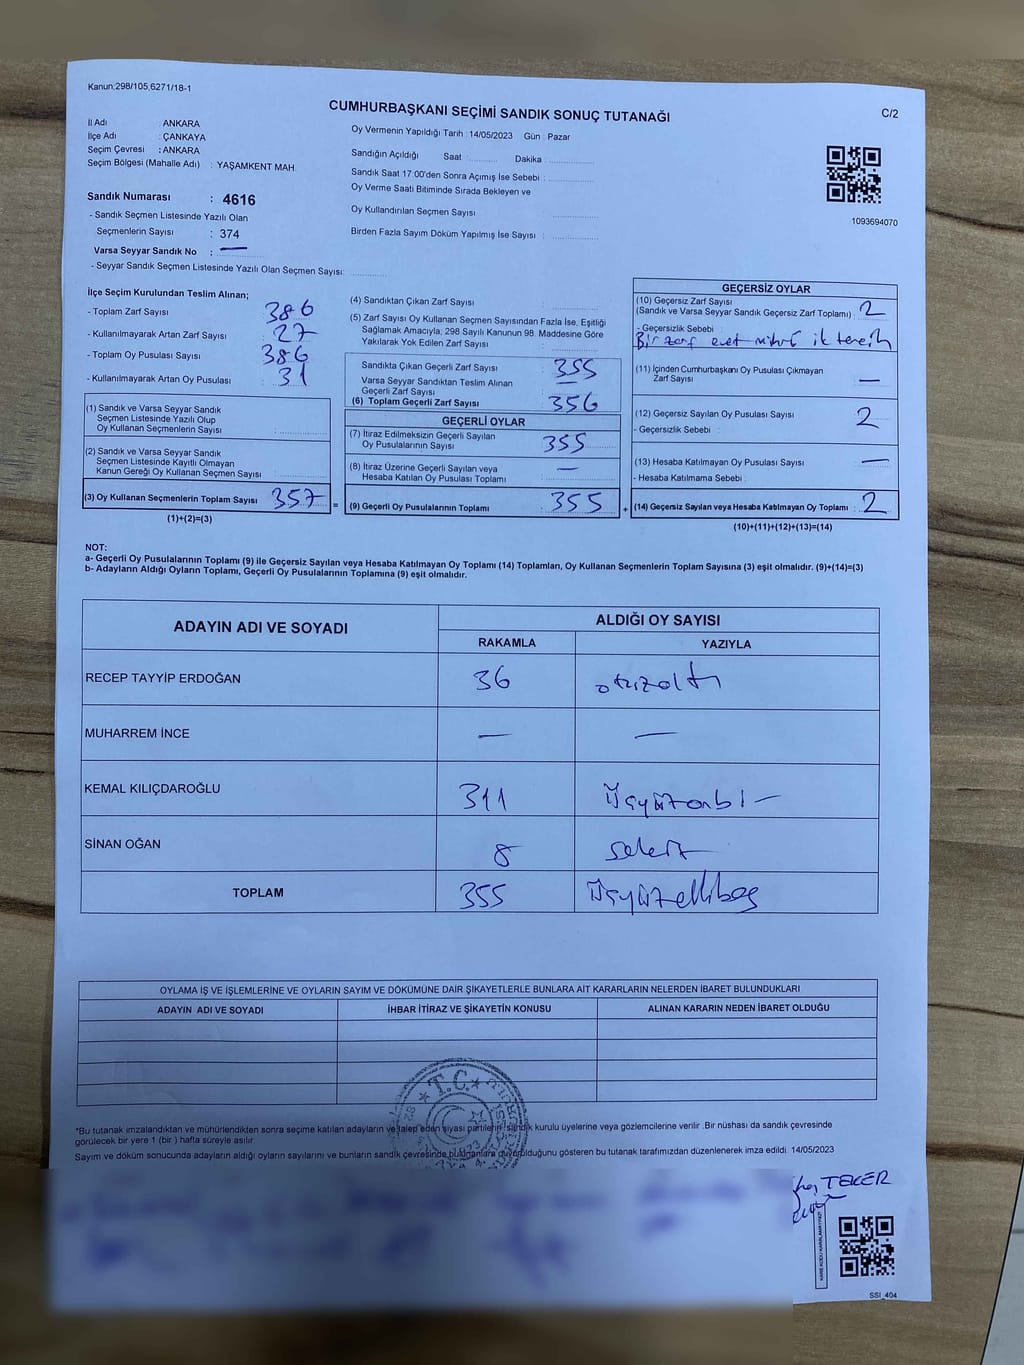 Kanun;298/105,6271/18-1
CUMHURBAŞKANI SEÇİMİ SANDIK SONUÇ TUTANAĞI
C/2
İl Adı : ANKARA
İlçe Adı : ÇANKAYA
Seçim Çevresi : ANKARA
Seçim Bölgesi (Mahalle Adı) : YAŞAMKENT MAH.
Oy Vermenin Yapıldığı Tarih : 14/05/2023 Gün : Pazar
Sandığın Açıldığı Saat : Dakika :
Sandık Saat 17:00'den Sonra Açımış İse Sebebi :
Oy Verme Saati Bitiminde Sırada Bekleyen ve
Oy Kullandırılan Seçmen Sayısı :
Birden Fazla Sayım Döküm Yapılmış İse Sayısı :
1093694070
Sandık Numarası : 4616
- Sandık Seçmen Listesinde Yazılı Olan
Seçmenlerin Sayısı : 374
Varsa Seyyar Sandık No : —
- Seyyar Sandık Seçmen Listesinde Yazılı Olan Seçmen Sayısı:
İlçe Seçim Kurulundan Teslim Alınan;
- Toplam Zarf Sayısı : 386
- Kullanılmayarak Artan Zarf Sayısı : 27
- Toplam Oy Pusulası Sayısı : 386
- Kullanılmayarak Artan Oy Pusulası : 31
(1) Sandık ve Varsa Seyyar Sandık
Seçmen Listesinde Yazılı Olup
Oy Kullanan Seçmenlerin Sayısı :
(2) Sandık ve Varsa Seyyar Sandık
Seçmen Listesinde Kayıtlı Olmayan
Kanun Gereği Oy Kullanan Seçmen Sayısı :
(3) Oy Kullanan Seçmenlerin Toplam Sayısı : 357 =
(1)+(2)=(3)
(4) Sandıktan Çıkan Zarf Sayısı :
(5) Zarf Sayısı Oy Kullanan Seçmen Sayısından Fazla İse, Eşitliği
Sağlamak Amacıyla; 298 Sayılı Kanunun 98. Maddesine Göre
Yakılarak Yok Edilen Zarf Sayısı :
Sandıkta Çıkan Geçerli Zarf Sayısı : 355
Varsa Seyyar Sandıktan Teslim Alınan
Geçerli Zarf Sayısı : —
(6) Toplam Geçerli Zarf Sayısı : 356
GEÇERLİ OYLAR
(7) İtiraz Edilmeksizin Geçerli Sayılan
Oy Pusulalarının Sayısı : 355
(8) İtiraz Üzerine Geçerli Sayılan veya
Hesaba Katılan Oy Pusulası Toplamı : —
(9) Geçerli Oy Pusulalarının Toplamı : 355 +
GEÇERSİZ OYLAR
(10) Geçersiz Zarf Sayısı
(Sandık ve Varsa Seyyar Sandık Geçersiz Zarf Toplamı) : 2
- Geçersizlik Sebebi :
Bir zarf evet mührü
(11) İçinden Cumhurbaşkanı Oy Pusulası Çıkmayan
Zarf Sayısı : —
(12) Geçersiz Sayılan Oy Pusulası Sayısı : 2
- Geçersizlik Sebebi :
(13) Hesaba Katılmayan Oy Pusulası Sayısı : —
- Hesaba Katılmama Sebebi :
(14) Geçersiz Sayılan veya Hesaba Katılmayan Oy Toplamı : 2
(10)+(11)+(12)+(13)=(14)
NOT:
a- Geçerli Oy Pusulalarının Toplamı (9) ile Geçersiz Sayılan veya Hesaba Katılmayan Oy Toplamı (14) Toplamları, Oy Kullanan Seçmenlerin Toplam Sayısına (3) eşit olmalıdır. (9)+(14)=(3)
b- Adayların Aldığı Oyların Toplamı, Geçerli Oy Pusulalarının Toplamına (9) eşit olmalıdır.
ADAYIN ADI VE SOYADI ALDIĞI OY SAYISI
RAKAMLA YAZIYLA
RECEP TAYYİP ERDOĞAN 36 otuzaltı
MUHARREM İNCE — —
KEMAL KILIÇDAROĞLU 311 üçyüzonbi—
SİNAN OĞAN 8 sekiz
TOPLAM 355 üçyüzellibeş
OYLAMA İŞ VE İŞLEMLERİNE VE OYLARIN SAYIM VE DÖKÜMÜNE DAİR ŞİKAYETLERLE BUNLARA AİT KARARLARIN NELERDEN İBARET BULUNDUKLARI
ADAYIN ADI VE SOYADI İHBAR İTİRAZ VE ŞİKAYETİN KONUSU ALINAN KARARIN NEDEN İBARET OLDUĞU
T.C.
*Bu tutanak imzalandıktan ve mühürlendikten sonra seçime katılan adayların ve talep eden siyasi partilerin sandık kurulu üyelerine veya gözlemcilerine verilir .Bir nüshası da sandık çevresinde
görülecek bir yere 1 (bir ) hafta süreyle asılır.
Sayım ve döküm sonucunda adayların aldığı oyların sayılarını ve bunların sandık çevresinde bulunanlara duyurulduğunu gösteren bu tutanak tarafımızdan düzenlenerek imza edildi. 14/05/2023
TEKER
SSI_404